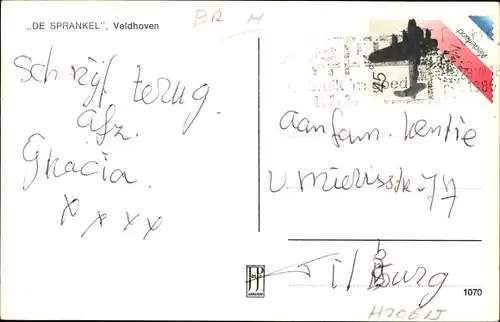 „DE SPRANKEL”, Veldhoven
BR H
Schrijf terug.
afz.
Gracia.
x x x x
Nederland
45
198
aan fam. Kentie
v. Mierisstr. 77
Tilburg
JosPé
ARNHEM
1070